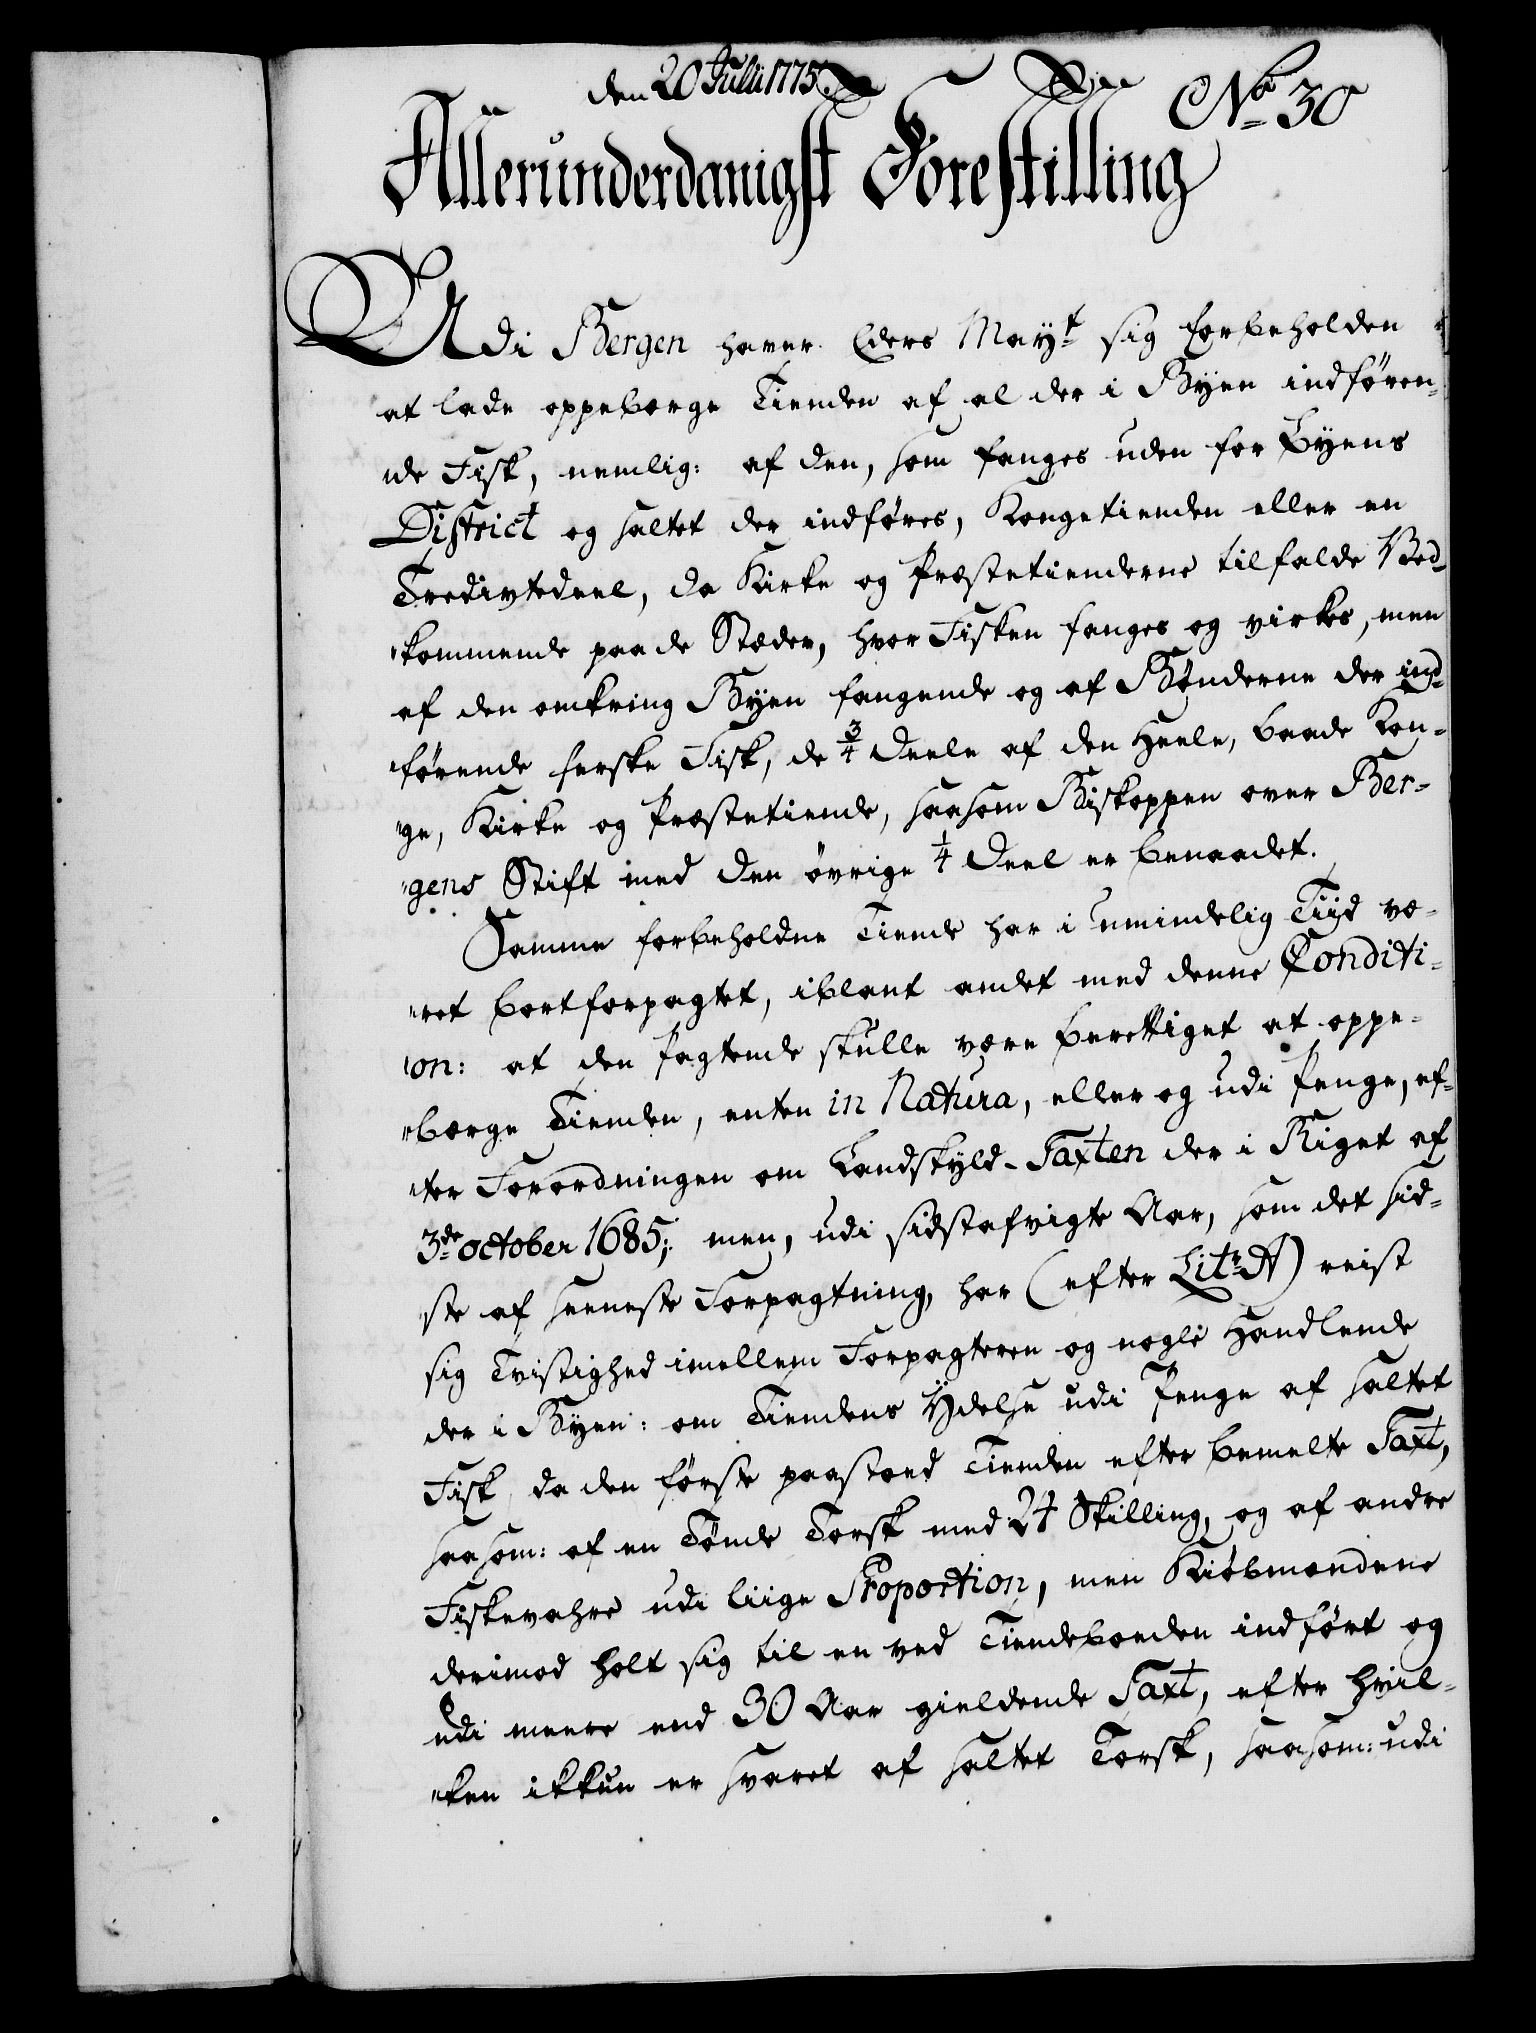 den 20 Julii 1775.
No 30
Allerunderdanigst Forestilling
Udi Bergen haver Eders Mayt sig forbeholden
at lade oppebærge Tienden af al der i Byen indføren-
de Fisk, nemlig: af den, som fanges uden for Byens
District og saltet der indføres, Kongetienden eller en
Tredivtedeel, da Kirke og Præstetienderne tilfalde Ved-
kommende paa de Stæder, hvor Fisken fanges og virkes, men
af den omkring Byen fangende og af Bønderne der ind-
førende ferske Fisk, de 3/4 Deele af den heele, baade Kon-
ge, Kirke og Præstetiende, saasom Biskoppen over Ber-
gens Stift med den øvrige 1/4 Deel er benaadet.
Samme forbeholdne Tiende har i umindelig Tiid væ-
ret bortforpagtet, iblant andet med denne Conditi-
on: at den Pagtende skulle være berettiget at oppe-
bærge Tienden, enten in Natura, eller og udi Penge, ef-
ter Forordningen om Landskyld-Taxten der i Riget af
3de october 1685; men, udi sidstafvigte Aar, som det sid-
ste af seeneste Forpagtning, har (efter Litr. A) reist
sig Tvistighed imellem Forpagteren og nogle Handlende
der i Byen: om Tiendens Ydelse udi Penge af saltet
Fisk, da den første paastoed Tienden efter bemelte Taxt,
saasom: af en Tønde Torsk med 24 Skilling, og af andre
Fiskevahre udi liige Proportion, men Kiøbmændene
derimod holt sig til en ved Tiendeboeden indført og
udi meere end 30 Aar gieldende Taxt, efter hvil-
ken ikkun er svaret af saltet Torsk, saasom: udi